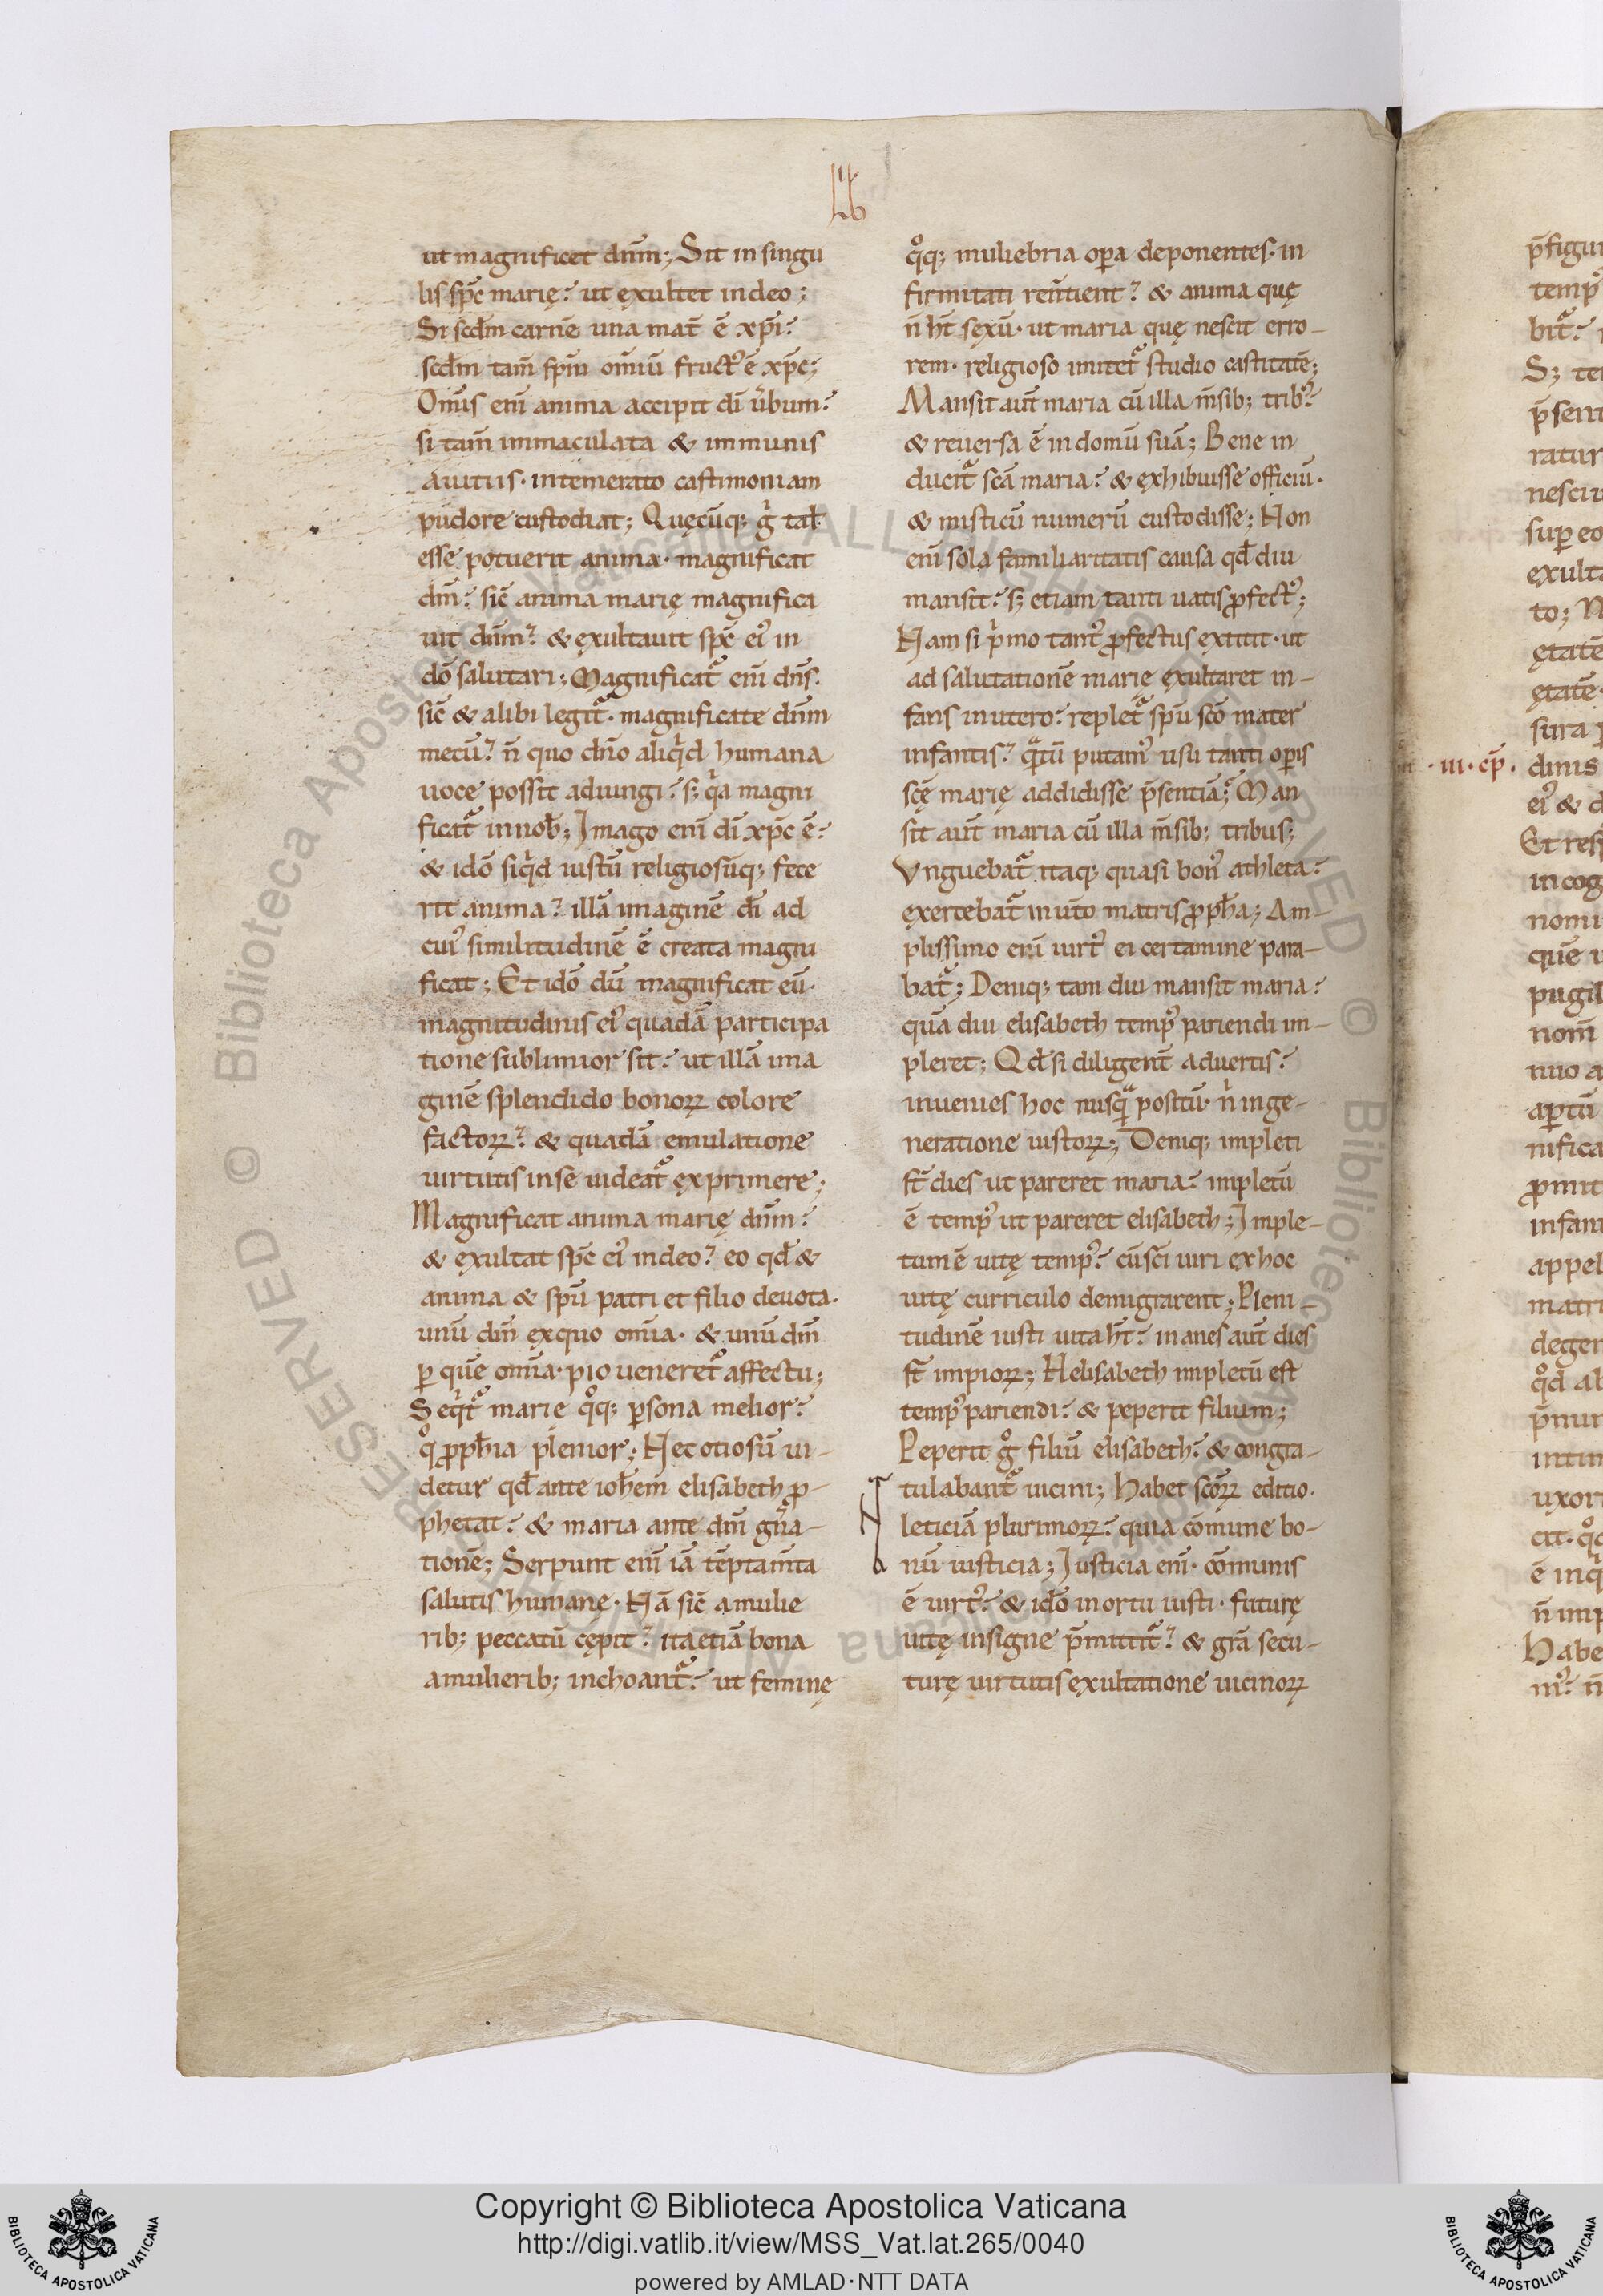 Lib
ut magnificet dnm̄; Sit in singu
lis spc̄ marię? ut exultet in deo;
Si scd̄m carnē una mat̄ ē xpī?
scd̄m tam̄ fidm̄ omniū fruct᾽ ē xpc̄;
Omīs enī anima accipit dī ūbum?
si tam̄ immaculata & immunis
a uitiis· intemerato castimoniam
pudore custodiat; Quęcūq; ḡ tal̄
esse potuerit anima· magnificat
dnm̄? sic̄ anima marię magnifica
uit dnm̄? & exultauit spc̄ ei᾽ in
dō salutari; Magnificat᷑ enī dn̄s·
sic̄ & alibi legit᷑· magnificate dnm̄
mecū? n̄ quo dn̄o aliqͥd humana
uoce possit adiungi? s; qͥa magni
ficat᷑ in nob̄; Imago enī dī xpc̄ ē?
& idō siqͥd iustū religiosūq; fece
rit anima? illā imaginē dī ad
cui᾽ similitudinē ē creata magni
ficat; Et idō dū magnificat eū·
magnitudinis ei᾽ quadā participa
tione sublimior sit? ut illā ima
ginē splendido bonoꝝ colore
factoꝝ? & quadā emulatione
uirtutis in se uideat᷑ exprimere;
Magnificat anima marię dnm̄?
& exultat spc̄ ei᾽ in deo? eo qd̄ &
anima & spū patri et filio deuota·
unū dm̄ ex quo omīa· & unū dnm̄
ꝑ quē omīa· pio ueneret᷑ affectu;
Seqͥt᷑ marie qͦq; ꝑsona melior?
qͦ ꝓph̄ia plenior; Nec otiosū ui-
detur qd̄ ante ioh̄em elisabeth ꝓ-
phetat? & maria ante dnī gn̄a-
tionē; Serpunt enī iā tēptam̄ta
salutis humanę· Nā sic̄ a mulie
rib; peccatū cępit? ita etiā bona
a mulierib; inchoant᷑? ut feminę
qͦq; muliebria oꝑa deponentes· in
firmitati renūtient? & anima quę
n̄ ht̄ sexū· ut maria quę nescit erro-
rem· religioso imitet᷑ studio castitatē;
Mansit aūt maria cū illa m̄sib; trib᾽?
& reuersa ē in domū suā; Bene in
ducit᷑ scā maria? & exhibuisse officiū·
& misticū numerū custodisse; Non
enī sola familiaritatis causa qd̄ diu
mansit? s; etiam tanti uatis ꝓfect᾽;
Nam si pͥmo tant᾽ ꝓfectus extitit· ut
ad salutationē marie exultaret in-
fans in utero? replet᷑ spū scō mater
infantis? qͣtū putam᾽ usu tanti oꝑis
scę marię addidisse p̄sentiā? Man
sit aūt maria cū illa m̄sib; tribus;
Vnguebat᷑ itaq; quasi bon᾽ athleta?
exercebat᷑ in utō matris ꝓph̄a; Am-
plissimo enī uirt᾽ ei certamine para-
bat᷑; Deniq; tam diu mansit maria?
quā diu elisabeth temp᾽ pariendi im-
pleret; Qd̄ si diligent̄ aduertis?
inuenies hoc nusqͣ positū· nͥ in ge-
neratione iustoꝝ; Deniq; impleti
st̄ dies ut pareret maria? impletū
ē temp᾽ ut pareret elisabeth; Imple-
tum ē uitę temp᾽? cū sci uiri ex hoc
uitę curriculo demigrarent; Pleni-
tudinē iusti uita ht̄? inanes aūt dies
st̄ impioꝝ; Helisabeth impletū est
temp᾽ pariendi? & peperit filium;
Peperit gͦ filiū elisabeth? & congra-
tulabant᷑ uicini; Habet scōꝝ editio·
leticiā plurimoꝝ? quia cōmune bo-
nū iusticia; Iusticia enī· cōmunis
ē uirt᾽? & idō in ortu iusti· futurę
uitę insigne p̄mittit᷑? & grā secu-
turę uirtutis exultatione uicinoꝝ
·iii· cp̄·
Copyright © Biblioteca Apostolica Vaticana
http://digi.vatlib.it/view/MSS_Vat.lat.265/0040
powered by AMLAD·NTT DATA
BIBLIOTECA APOSTOLICA VATICANA
BIBLIOTECA APOSTOLICA VATICANA